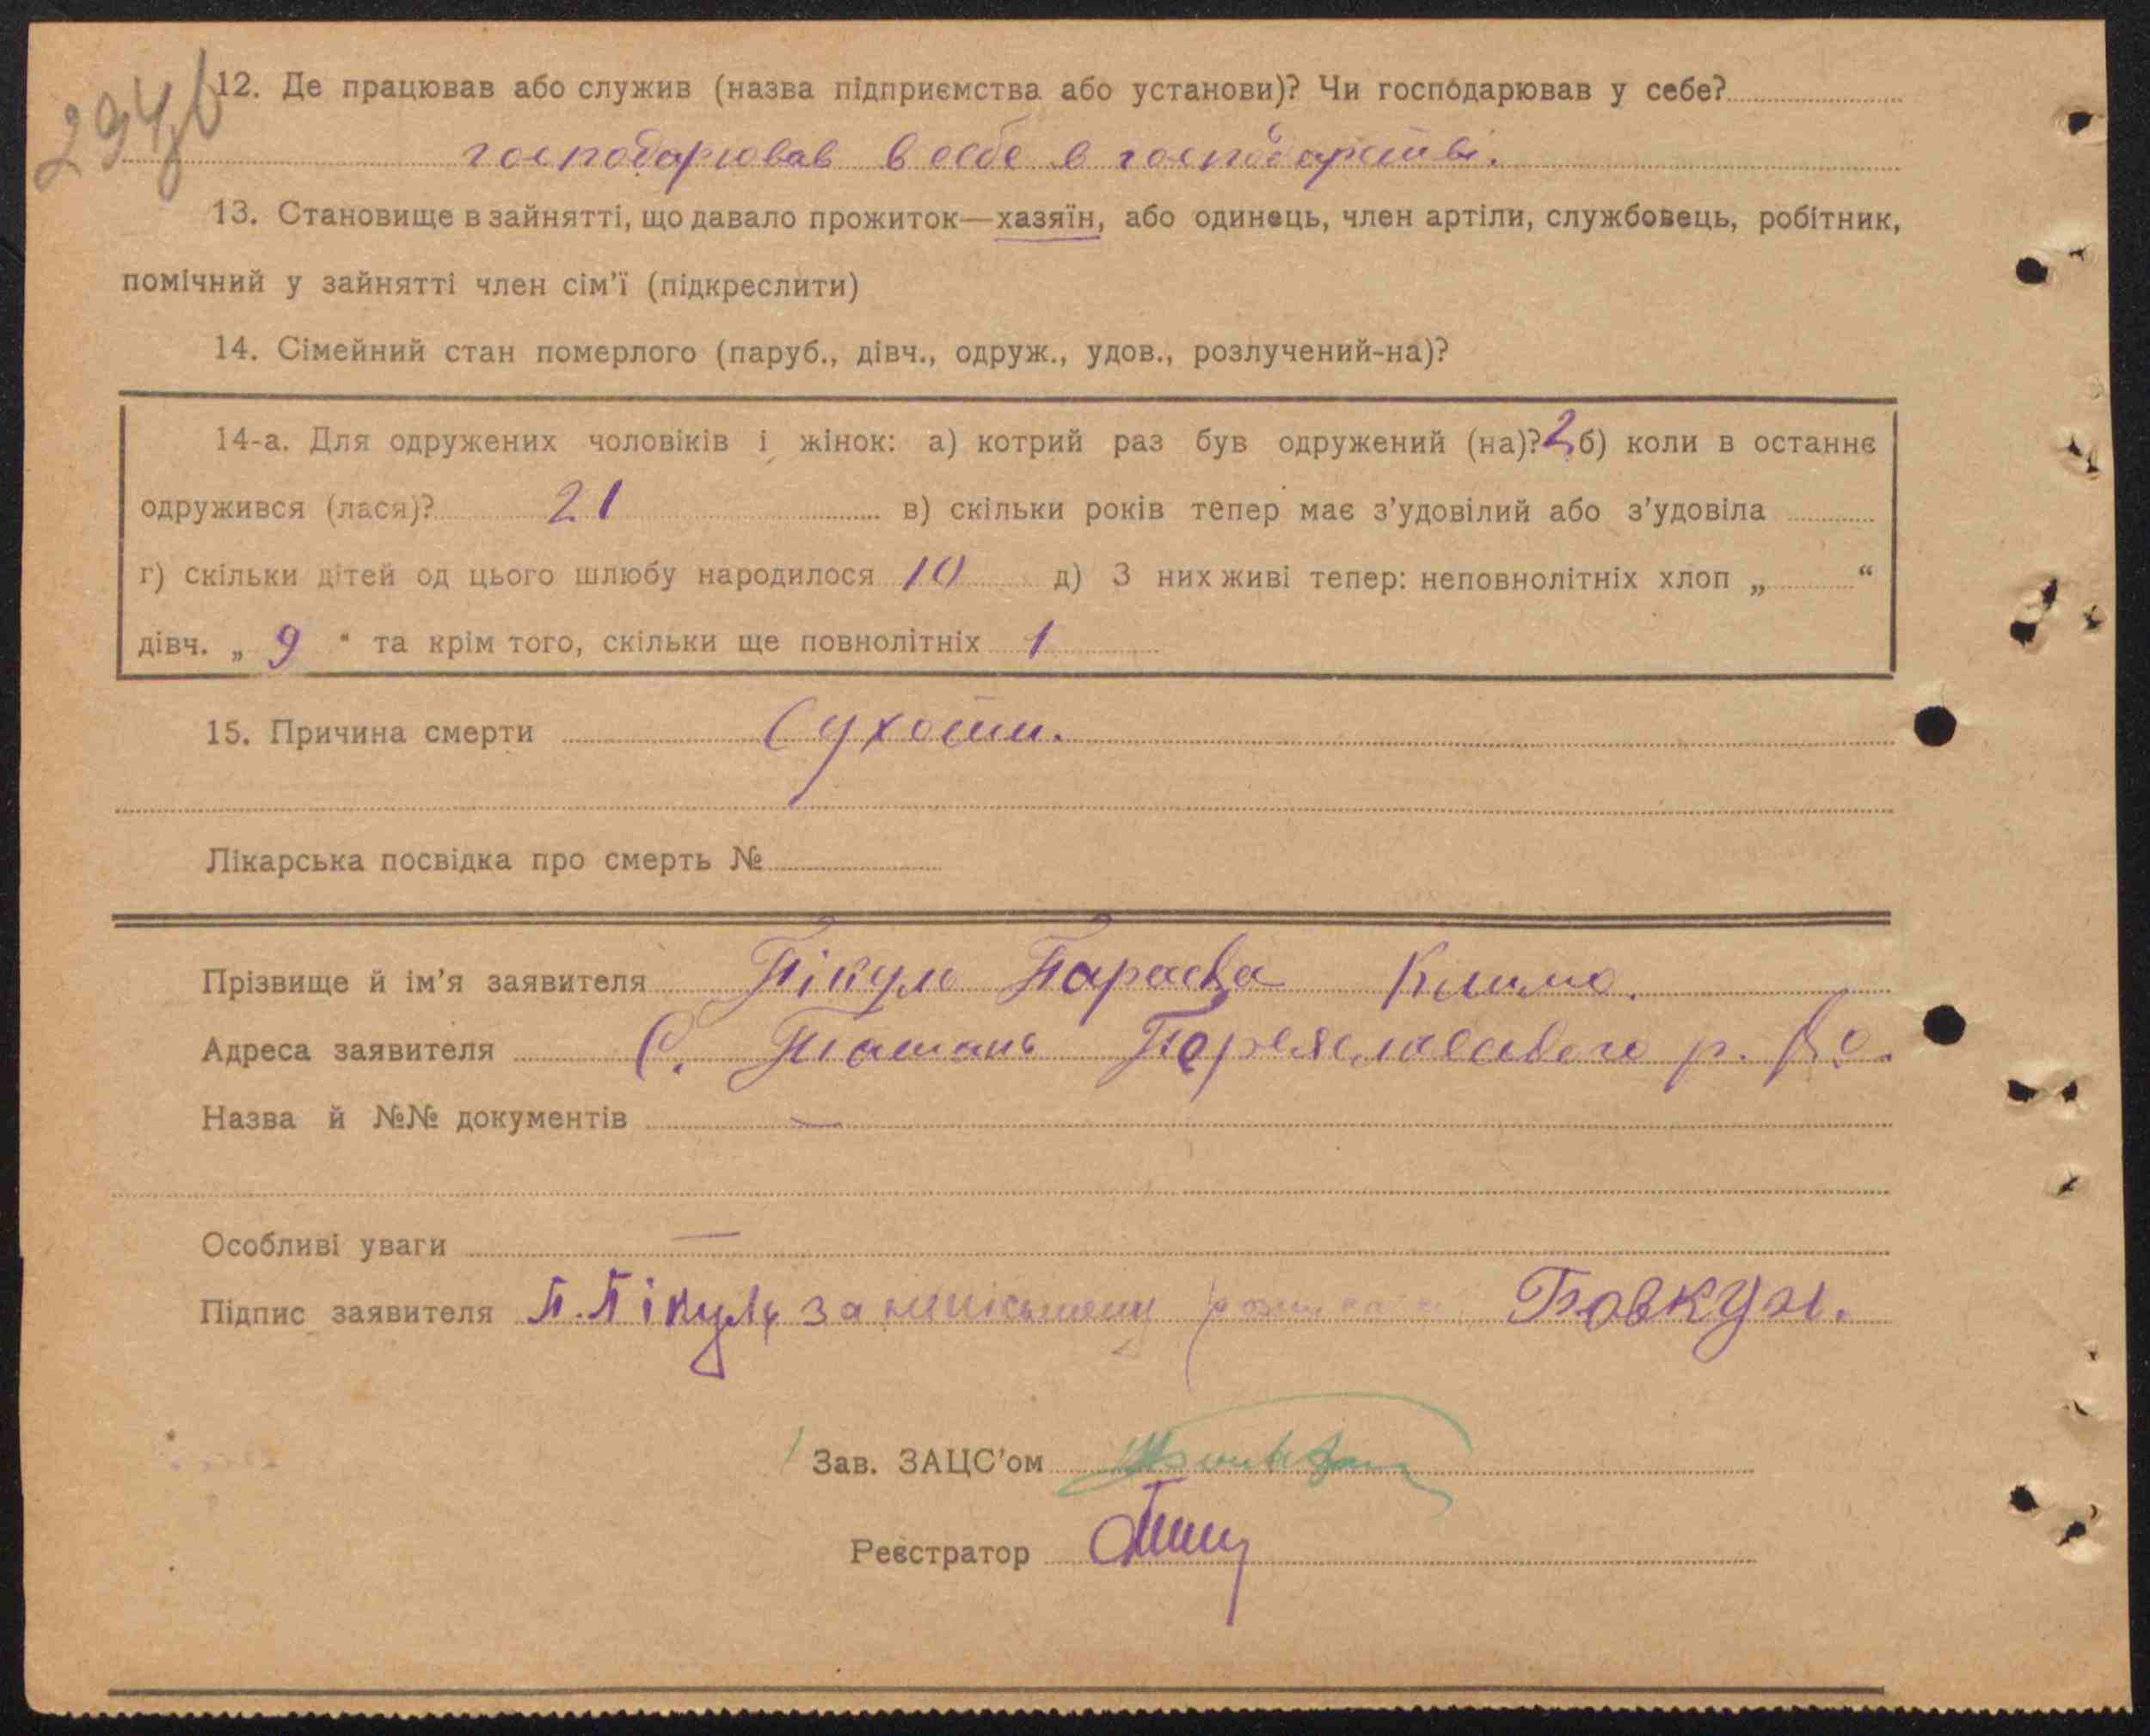 294
12. Де працював або служив (назва підприємства або установи)? Чи господарював у себе?
господарював в себе в господарстві.
13. Становище в зайнятті, що давало прожиток—хазяїн, або одинець, член артіли, службовець, робітник,
помічний у зайнятті член сім'ї (підкреслити)
14. Сімейний стан померлого (паруб., дівч., одруж., удов., розлучений-на)?
14-а. Для одружених чоловіків і жінок: а) котрий раз був одружений (на)? 2 б) коли в останнє
одружився (лася)? 21 в) скільки років тепер має з'удовілий або з'удовіла
г) скільки дітей од цього шлюбу народилося 10 д) З них живі тепер: неповнолітніх хлоп „ “
дівч. „ 9 “ та крім того, скільки ще повнолітніх 1
15. Причина смерти Сухоти.
Лікарська посвідка про смерть №
Прізвище й ім'я заявителя Пікуль Параска Климо.
Адреса заявителя С. Ташань Переяславського р.
Назва й №№ документів —
Особливі уваги —
Підпис заявителя П. Пікуль за неписьменну Бовкун.
Зав. ЗАЦС'ом
Реєстратор